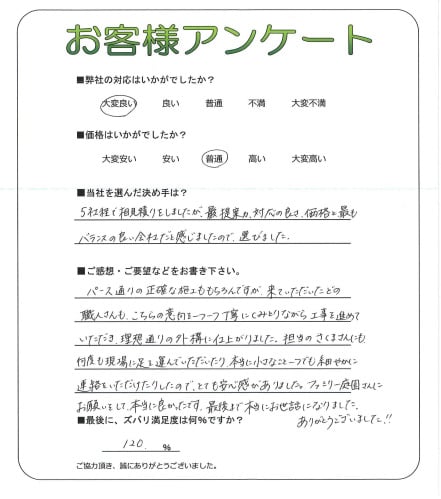 お客様アンケート
■弊社の対応はいかがでしたか?
大変良い 良い 普通 不満 大変不満
■価格はいかがでしたか?
大変安い 安い 普通 高い 大変高い
■当社を選んだ決め手は?
5社程で相見積りをしましたが、最も提案力、対応の良さ、価格と最も
バランスの良い会社だと感じましたので、選びました。
■ご感想・ご要望などをお書き下さい。
パース通りの正確な施工ももちろんですが、来ていただいたどの
職人さんも、こちらの意向を一つ一つ丁寧にくみとりながら工事を進めて
いただき、理想通りの外構に仕上がりました。担当のさくまさんにも
何度も現場に足を運んでいただいたり、本当に小さなこと一つでも細やかに
連絡をいただけたりしたので、とても安心感がありました。ファミリー庭園さんに
お願いをして、本当に良かったです。最後まで本当にお世話になりました。
ありがとうございました!!
■最後に、ズバリ満足度は何%ですか?
120. %
ご協力頂き、誠にありがとうございました。